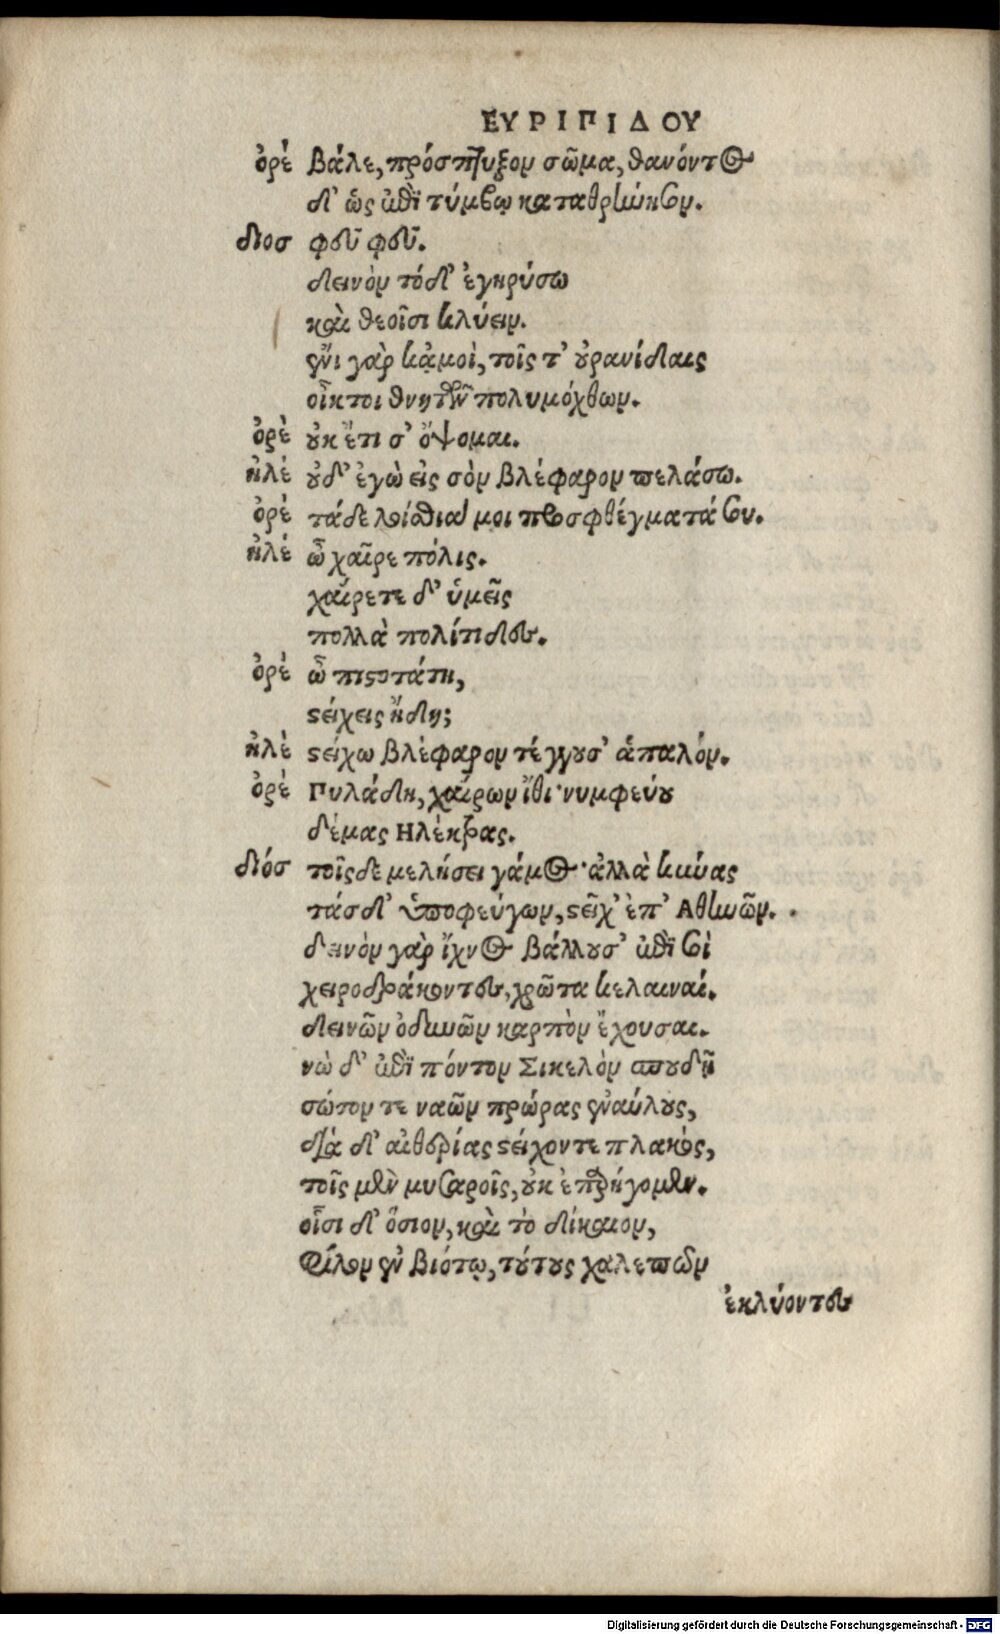 ΕΥΡΙΠΙΔΟΥ
ὀρέ βάλε, πρόσπτυξον σῶμα, θανόντος
δ' ὡς ἐπὶ τύμβῳ καταθρήνησον.
διοσ φεῦ φεῦ.
δεινὸν τόδ' ἐγηρύσω
καὶ θεοῖσι κλύειν.
ἔνι γὰρ κἀμοὶ, τοῖς τ' οὐρανίδαις
οἶκτοι θνητῶν πολυμόχθων.
ὀρὲ οὐκ ἔτι σ' ὄψομαι.
ἠλέ οὐδ' ἐγὼ εἰς σὸν βλέφαρον πελάσω.
ὀρέ τάδε λοίσθιά μοι προσφθέγματά σου.
ἠλέ ὦ χαῖρε πόλις.
χαίρετε δ' ὑμεῖς
πολλὰ πολίτιδες.
ὀρέ ὦ πιστοτάτη,
στείχεις ἤδη;
ἠλέ στείχω βλέφαρον τέγγουσ' ἁπαλόν.
ὀρέ Πυλάδη, χαίρων ἴθι· νυμφεύου
δέμας Ηλέκτρας.
διόσ τοῖςδε μελήσει γάμος· ἀλλὰ κύνας
τάσδ' ὑποφεύγων, στεῖχ' ἐπ' Αθηνῶν.
δεινὸν γὰρ ἴχνος βάλλουσ' ἐπὶ σοὶ
χειροδράκοντες, χρῶτα κελαιναί.
δεινῶν ὀδυνῶν καρπὸν ἔχουσαι.
νὼ δ' ἐπὶ πόντον Σικελὸν σπουδῇ
σώσοντε ναῶν πρώρας ἐνάλους,
διὰ δ' αἰθερίας στείχοντε πλακὸς,
τοῖς μὲν μυσαροῖς, οὐκ ἐπαρήγομεν.
οἷσι δ' ὅσιον, καὶ τὸ δίκαιον,
φίλον ἐν βιότῳ, τούτους χαλεπῶν
ἐκλύοντες
Digitalisierung gefördert durch die Deutsche Forschungsgemeinschaft - DFG